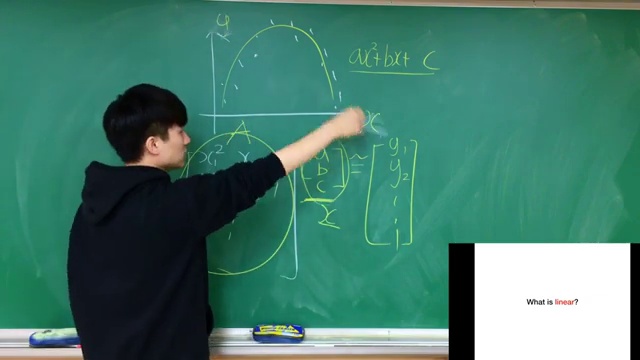 y
ax²+bx+ c
x
A
x₁² x₁
a
b
c
≈
y₁
y₂
x
What is linear?